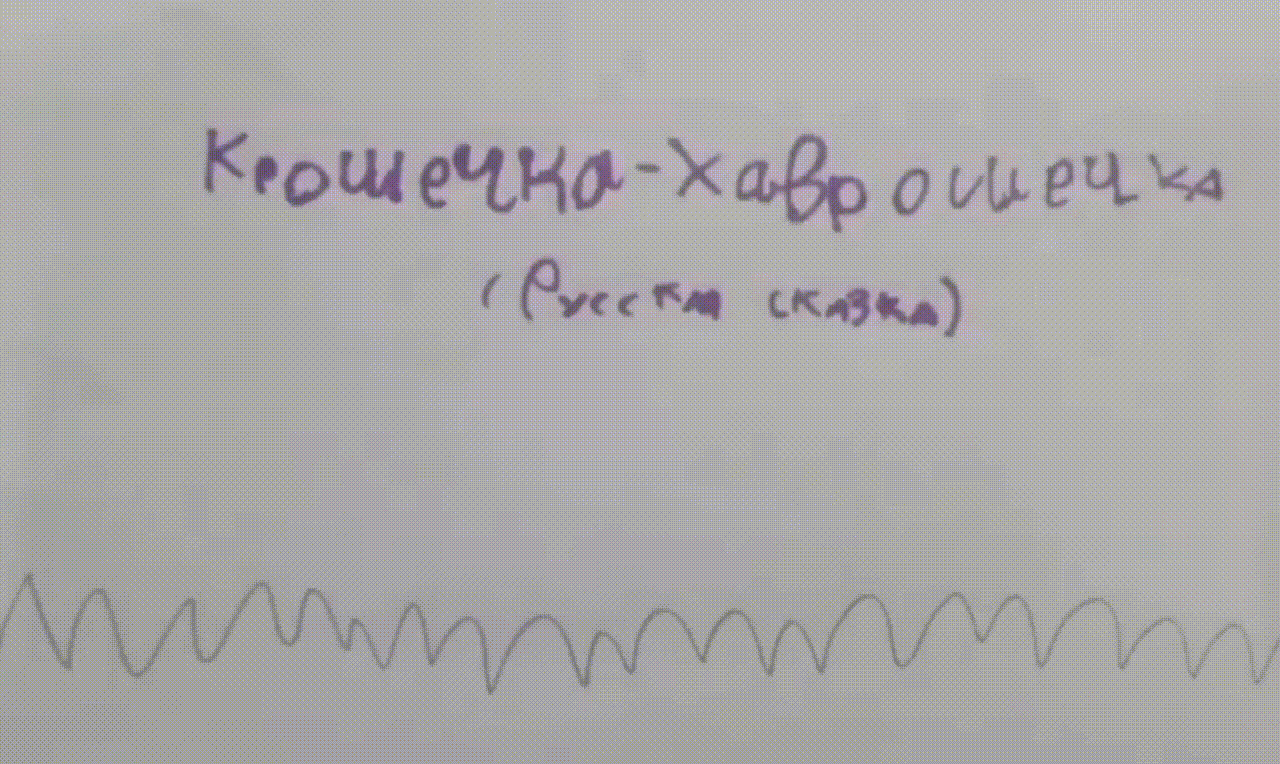 Крошечка-Хаврошечка
(Русская сказка)